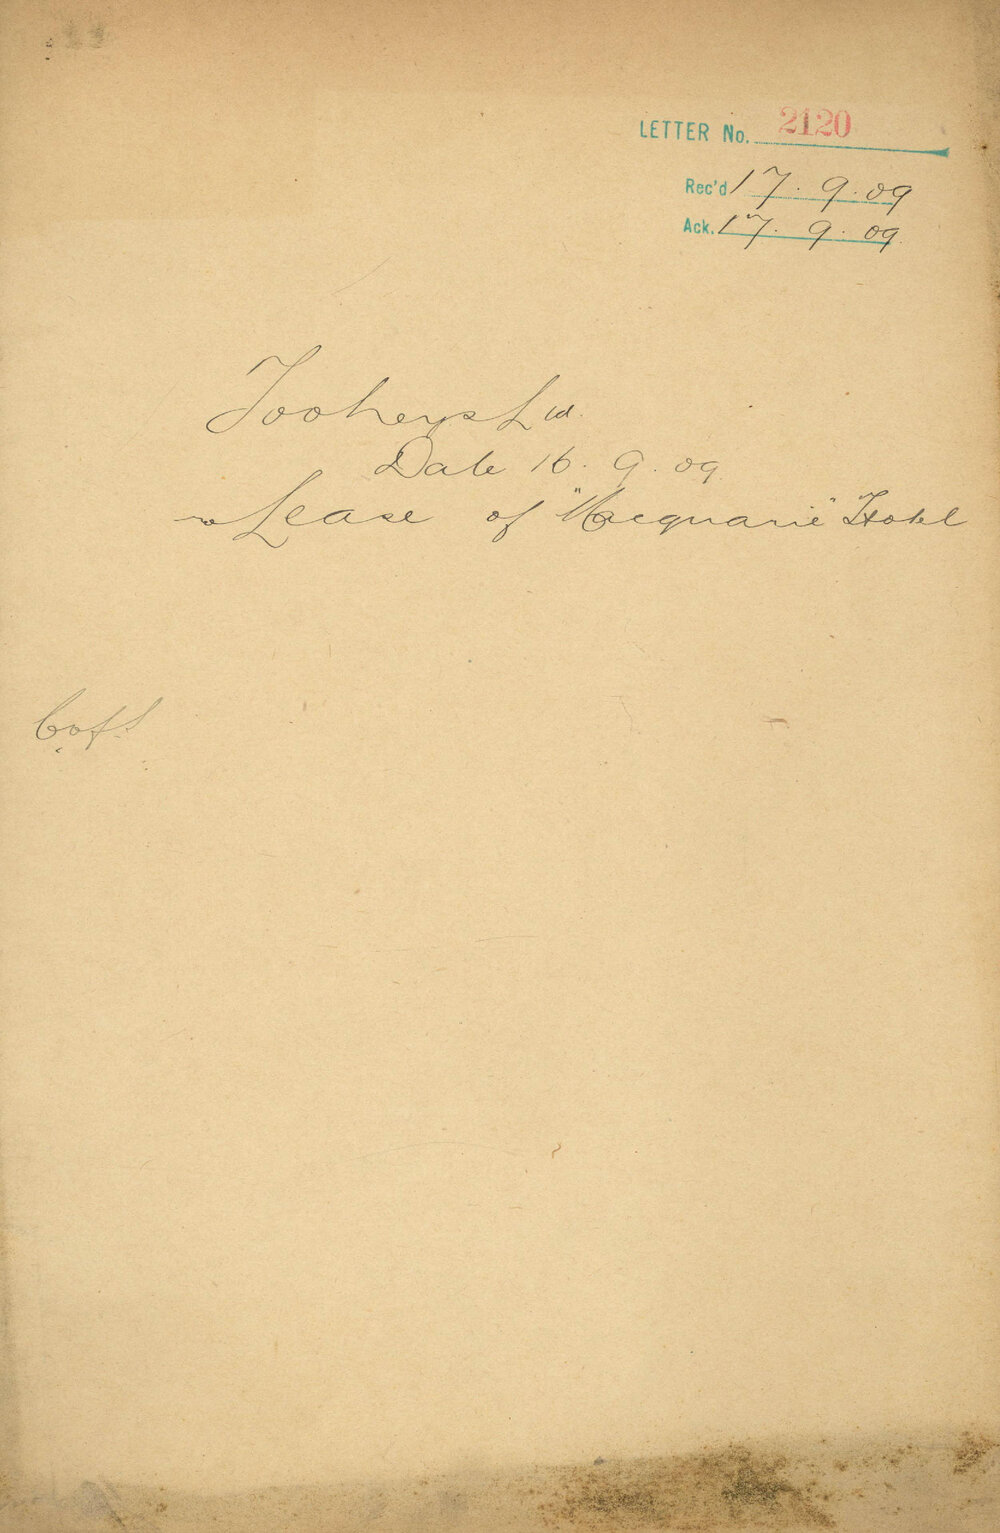 LETTER No. 2120
Rec'd 17. 9. 09
Ack. 17. 9. 09.
Tooheys Ltd.
Date 16. 9. 09.
re Lease of "Macquarie" Hotel